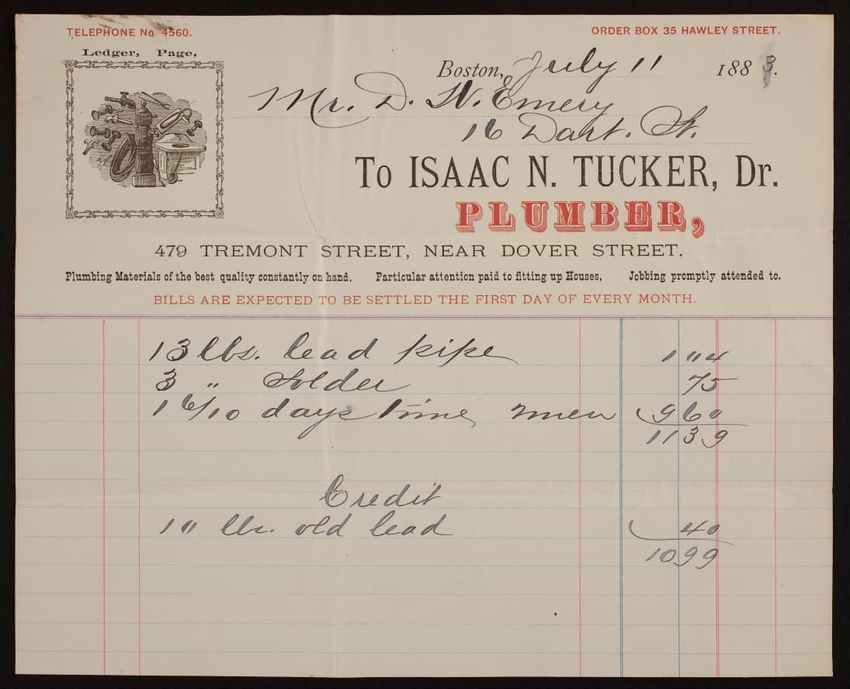 TELEPHONE No. 4560.
ORDER BOX 35 HAWLEY STREET.
Ledger, Page,
Boston, July 11 1883.
Mr. D. W. Emery
16 Dart. St.
To ISAAC N. TUCKER, Dr.
PLUMBER,
479 TREMONT STREET, NEAR DOVER STREET.
Plumbing Materials of the best quality constantly on hand. Particular attention paid to fitting up Houses. Jobbing promptly attended to.
BILLS ARE EXPECTED TO BE SETTLED THE FIRST DAY OF EVERY MONTH.
13 lbs. lead pipe 1 04
3 " Solder 75
1 6/10 days time, men 9 60
11 39
Credit
10 lbs. old lead 40
10 99